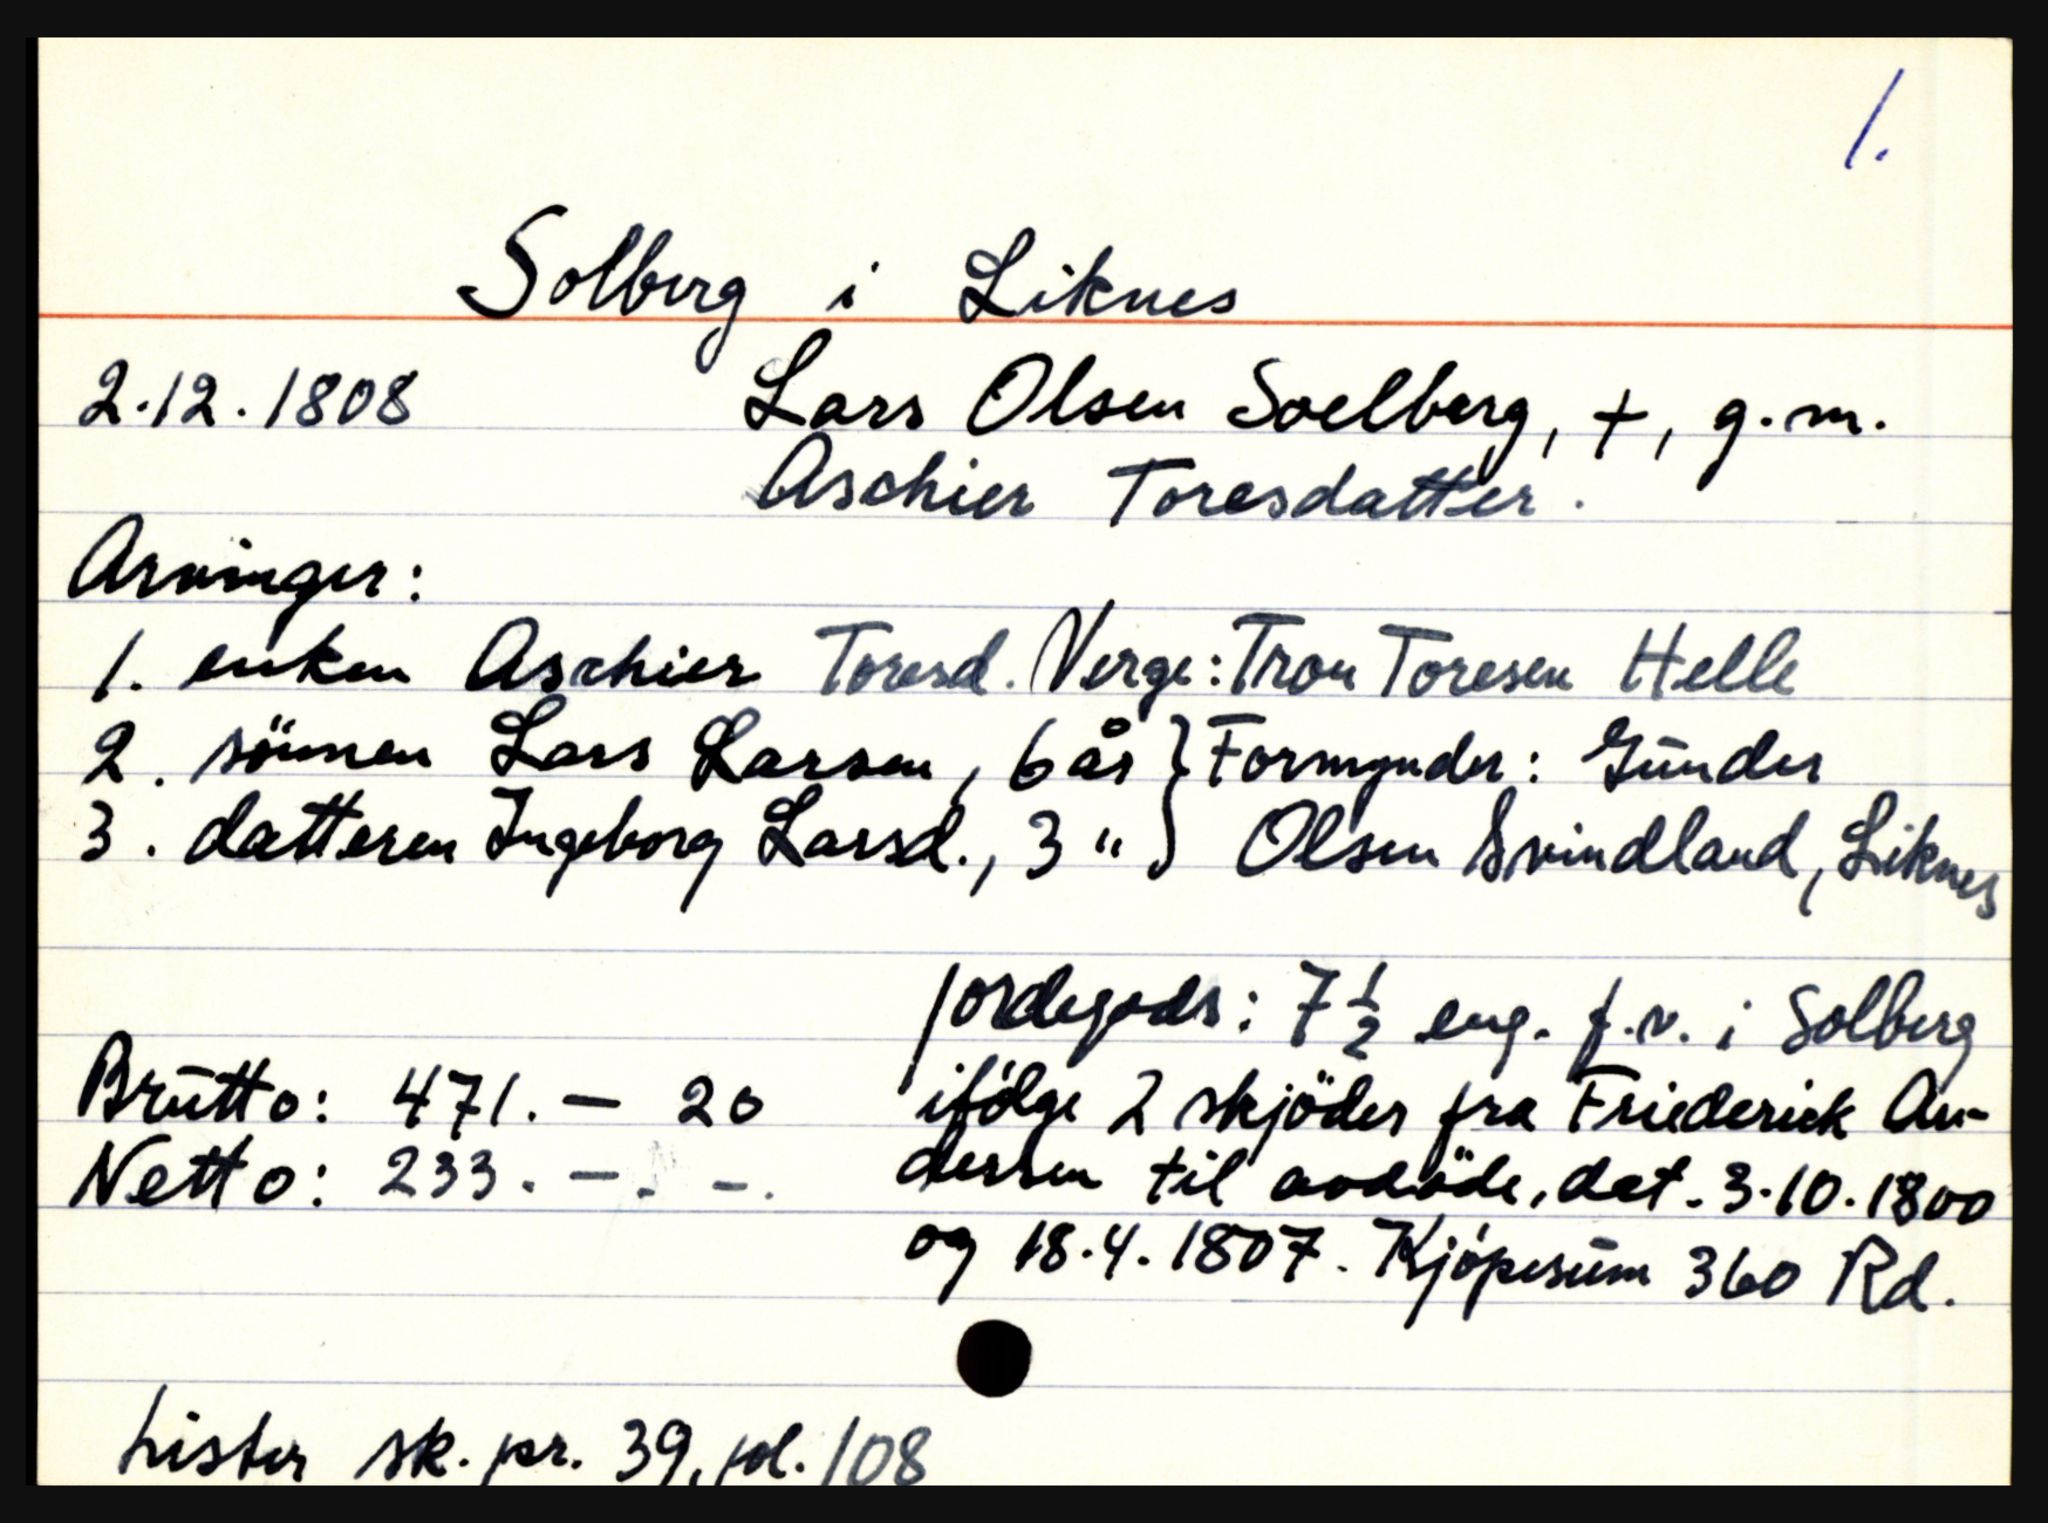 1.
Solberg i Liknes
2.12.1808 Lars Olsen Soelberg, +, g.m.
Aschier Toresdatter.
Arvinger:
1. enken Aschier Toresd. Verge: Tron Toresen Helle
2. sönnen Lars Larsen, 6 år } Formynder: Gūnder
3. datteren Ingeborg Larsd., 3 " } Olsen Svindland, Liknes
Jordegods: 7 1/2 eng. f.v. i Solberg
Brūtto: 471. — 20 ifölge 2 skjöder fra Friederick An-
Netto: 233. —. –. dersen til avdöde, dat. 3.10.1800
og 18.4.1807. Kjöpesūm 360 Rd.
Lister sk. pr. 39, fol. 108